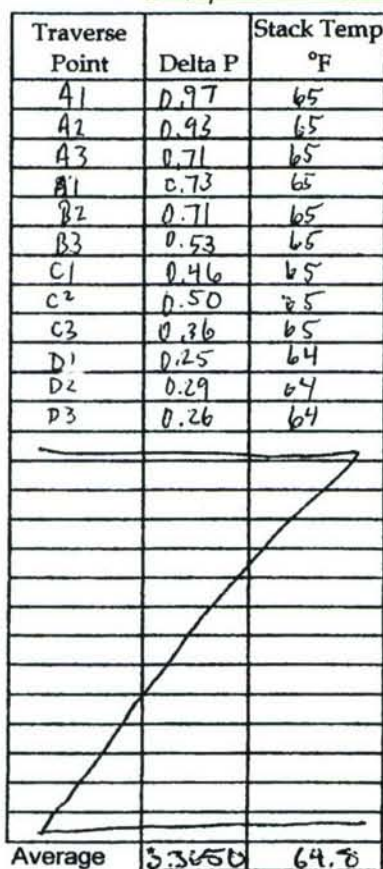 Traverse Point Delta P Stack Temp °F
A1 0.97 65
A2 0.93 65
A3 0.71 65
B1 0.73 65
B2 0.71 65
B3 0.53 65
C1 0.46 65
C2 0.50 65
C3 0.36 65
D1 0.25 64
D2 0.29 64
D3 0.26 64
Average 64.8